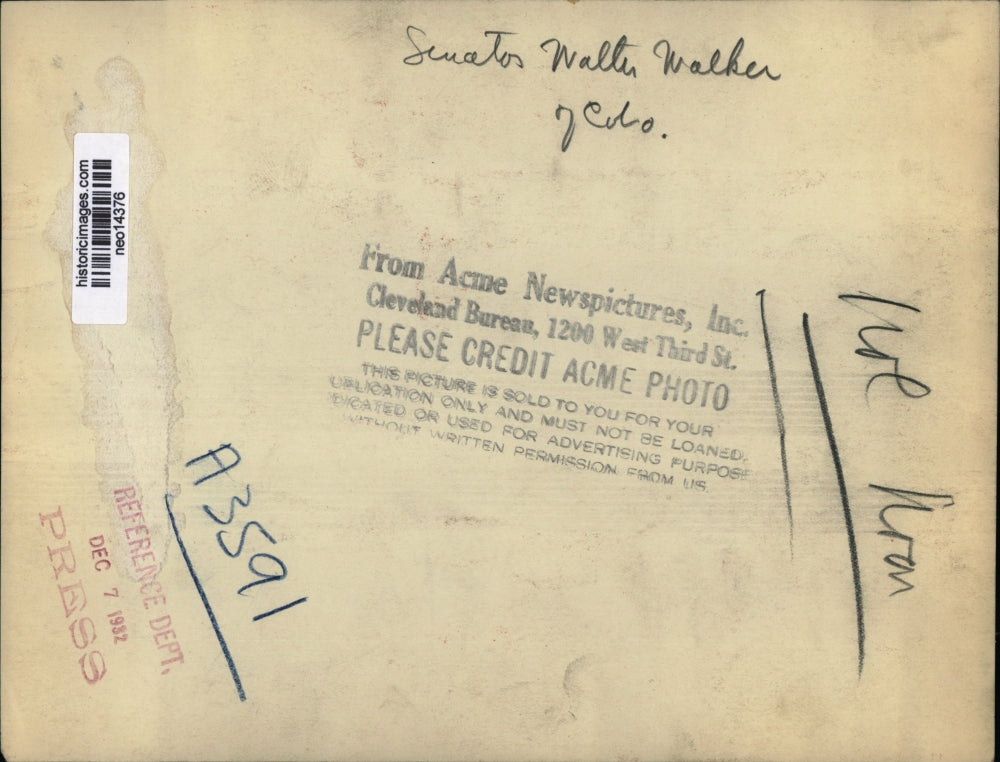 Senator Walter Walker
of Colo.
historicimages.com
neo14376
From Acme Newspictures, Inc.
Cleveland Bureau, 1200 West Third St.
PLEASE CREDIT ACME PHOTO
THIS PICTURE IS SOLD TO YOU FOR YOUR
UBLICATION ONLY AND MUST NOT BE LOANED,
DICATED OR USED FOR ADVERTISING PURPOSE
WITHOUT WRITTEN PERMISSION FROM US.
A3591
REFERENCE DEPT.
DEC 7 1932
PRESS